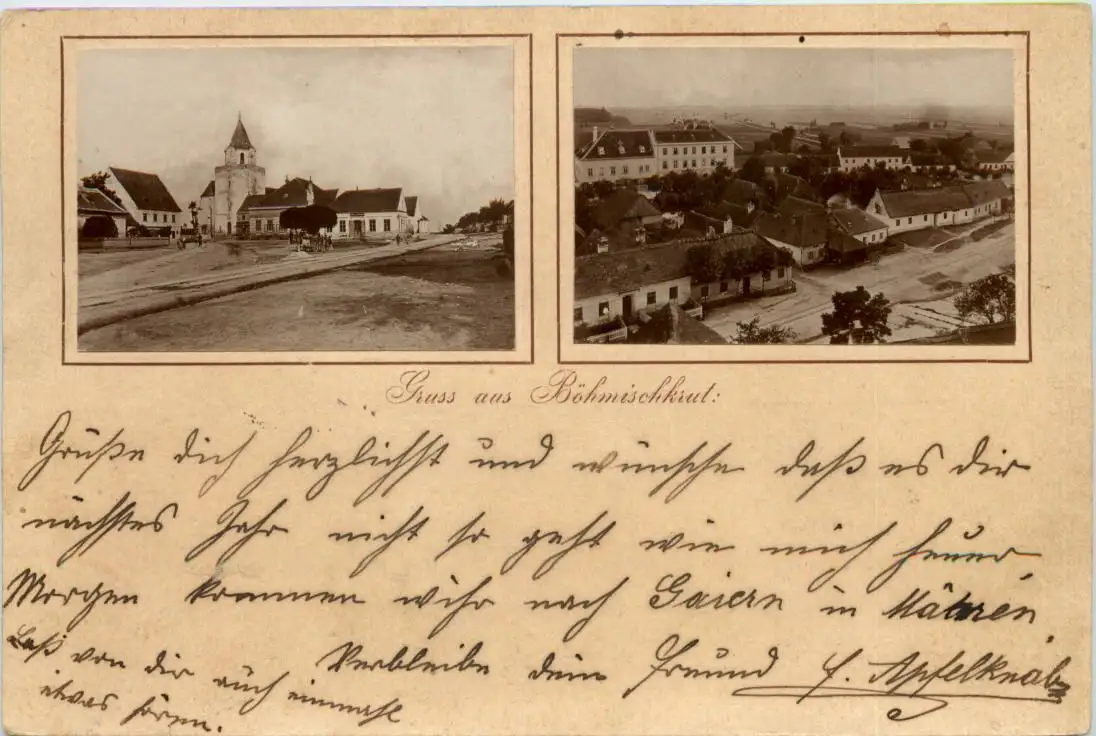 Gruss aus Böhmischkrut:
Grüße dich herzlichst und wünsche daß es dir
nächstes Jahr nicht so geht wie mich heuer
Morgen kommen wihr nach Gaiern in Mähren.
Verbleibe dein Freund J. Apfelknab
Laß von dir auch einmahl
etwas hören.